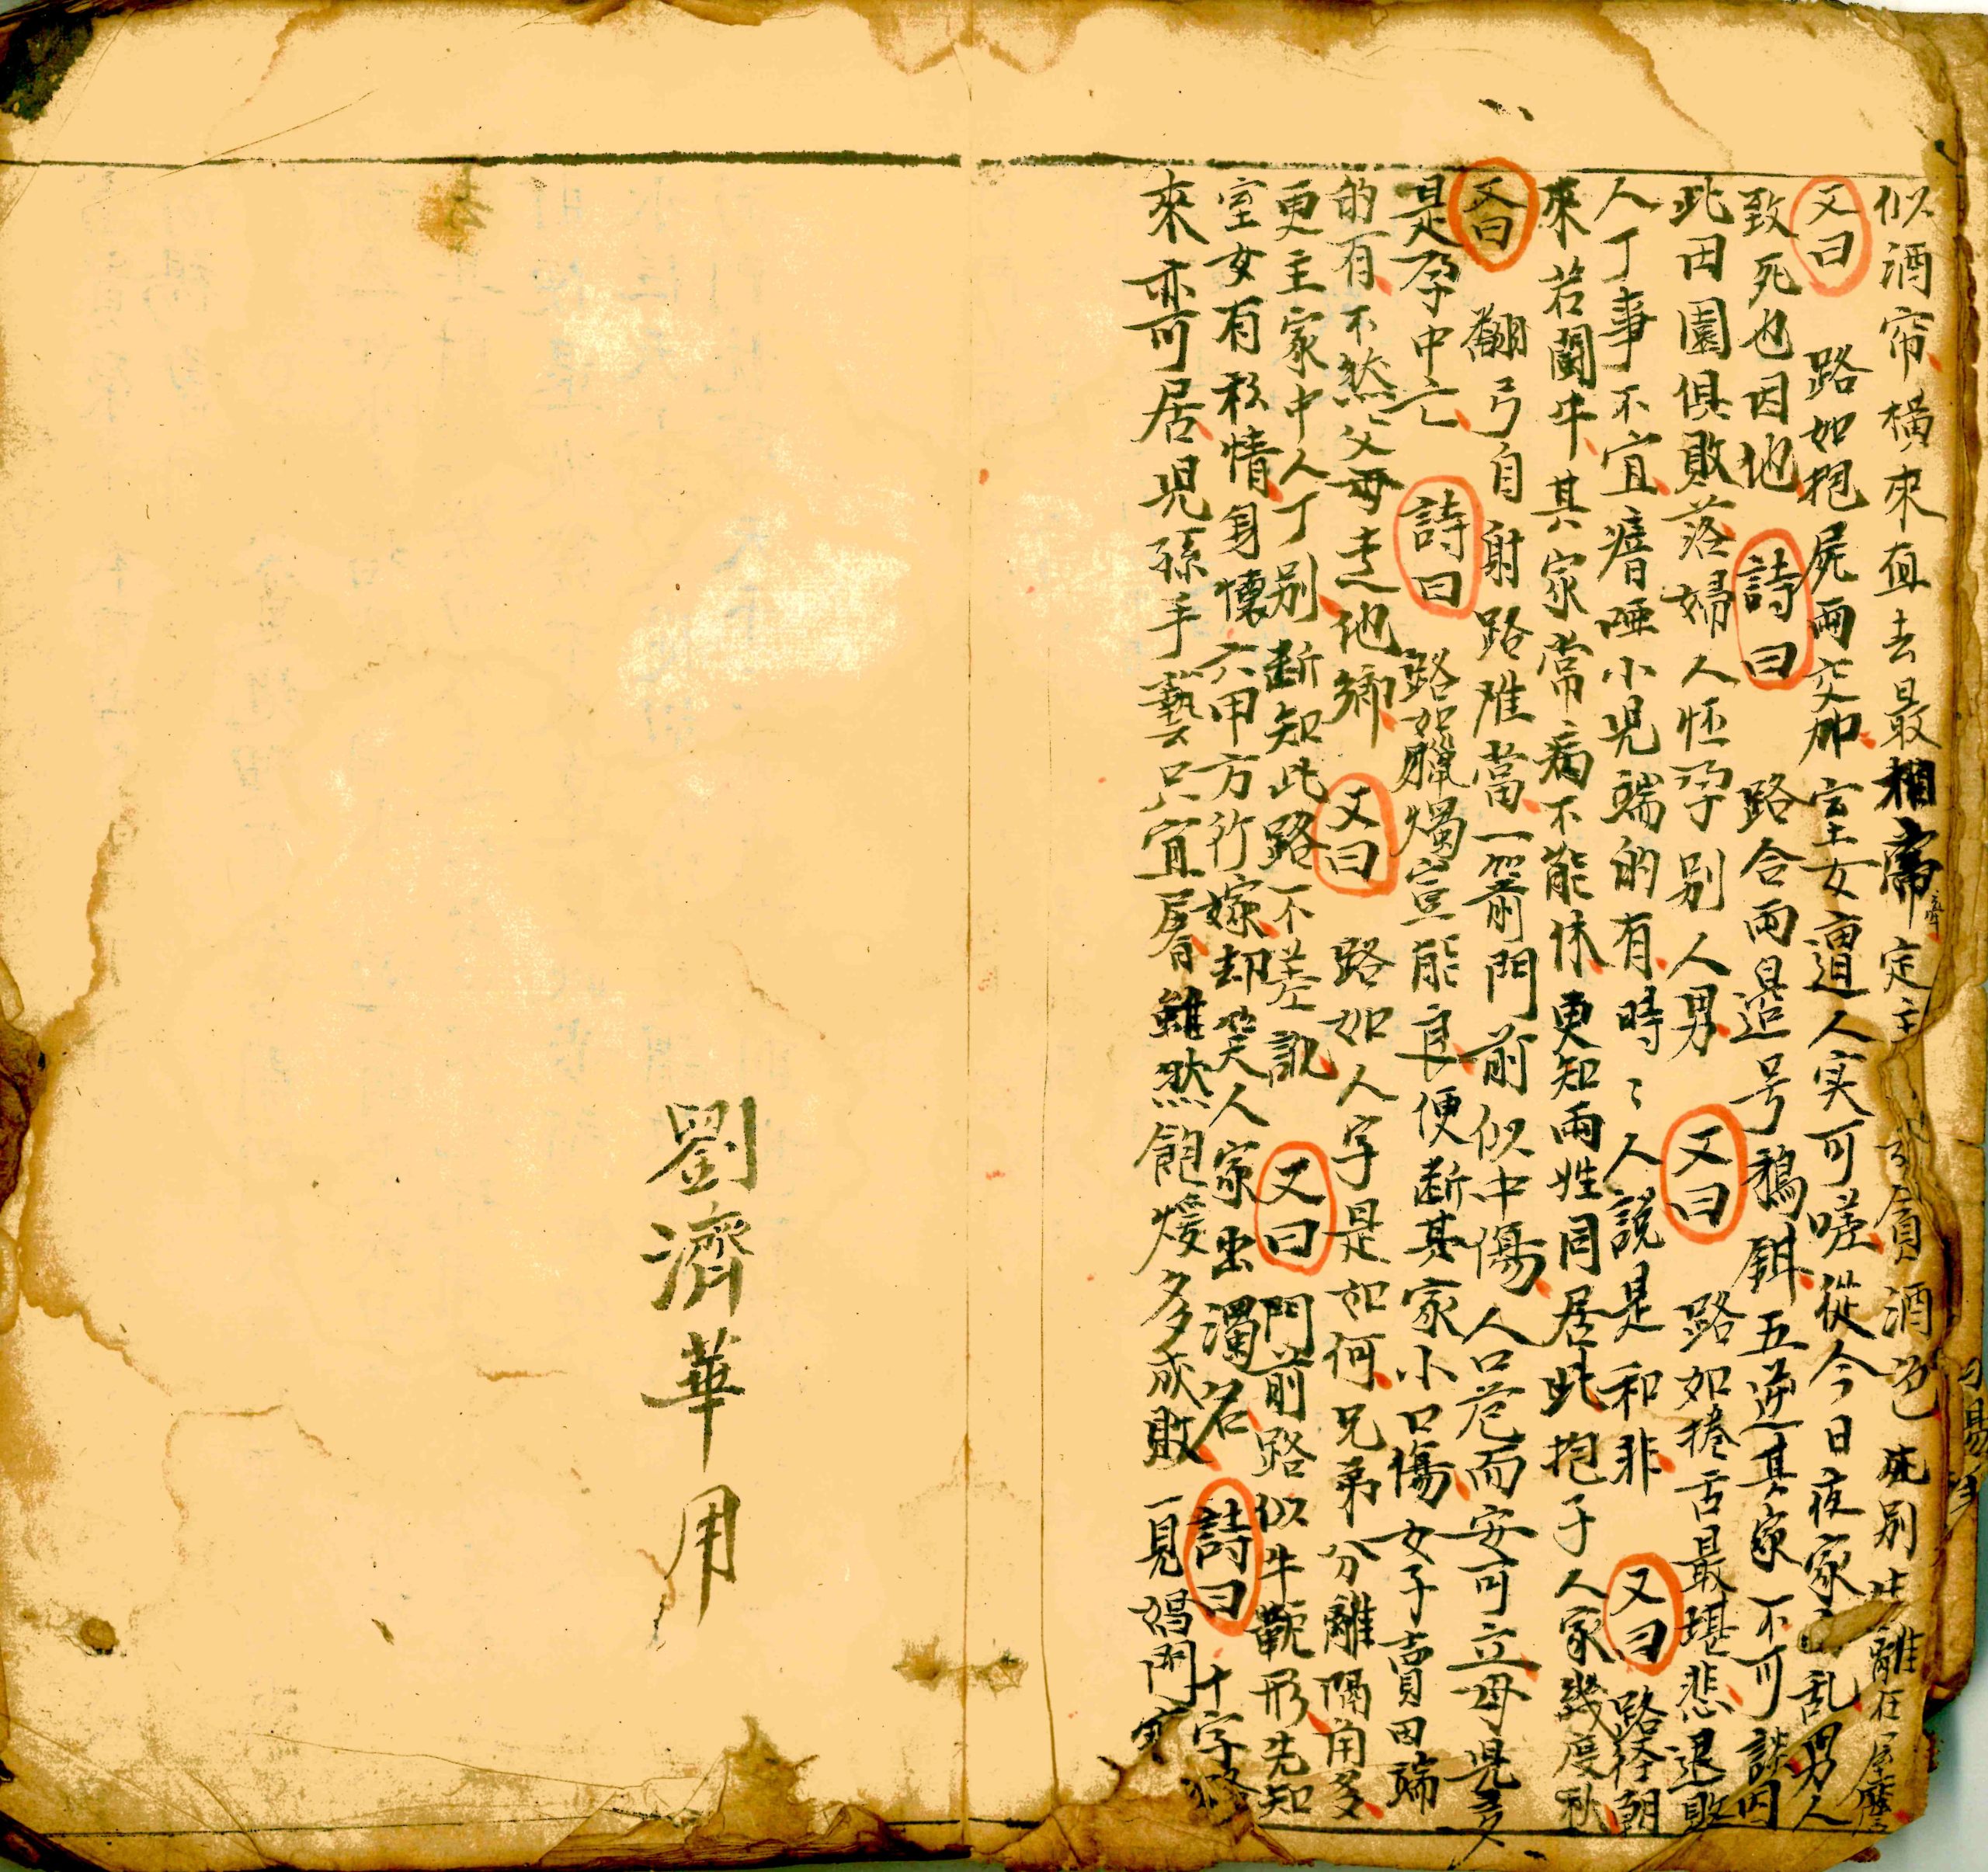 似酒帘橫來直去最相當定主貪酒色死別生離在一屋塵
又曰 路如抱屍兩交加室女遭人实可嗟從今日夜家乱男人
致死也因他 詩曰 路合兩邊号鴉鉺五逆其家不可談因
此田園俱敗落婦人怀孕别人男 又曰 路如捲舌最堪悲退敗
人丁事不宜瘖啞小児端的有時〻人説是和非 又曰 路徑朝
來若鬪牛其家常病不能休更知兩姓同居此抱子人家幾度秋
又曰 翻弓自射路难當一箭門前似中傷人口危而安可立母児多
是孕中亡 詩曰 路如臘燭豈能良便断其家小口傷女子賣田端
的有不然父母走他鄉 又曰 路如人字是如何兄弟分離隔角多
更主家中人丁别断知此路不差訛 又曰 門前路似牛軛形先知
室女有私情身懷六甲方行嫁却笑人家出濁名 詩曰 十字路
來亦可居児孫手藝只宜屠雖然飽煖多成敗一見娼門
劉濟華用